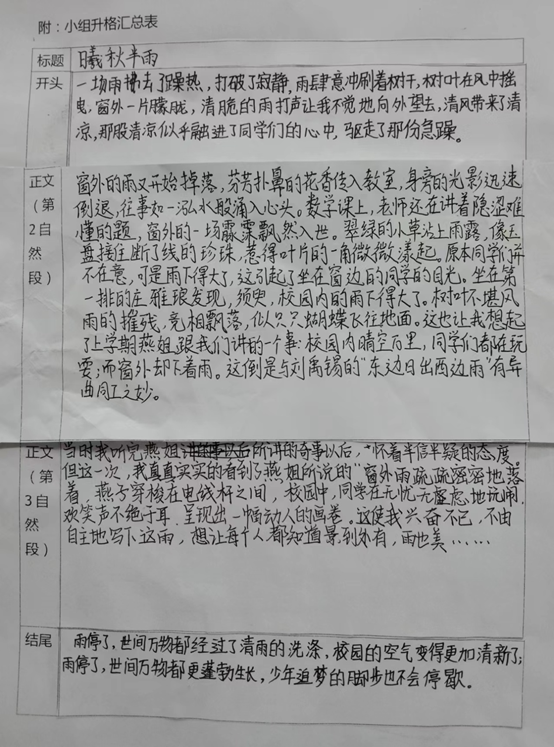 附：小组升格汇总表
标题 曦秋半雨
开头 一场雨拂去了燥热，打破了寂静，雨肆意冲刷着树干，树叶在风中摇
曳，窗外一片朦胧，清脆的雨打声让我不觉地向外望去，清风带来了清
凉，那股清凉似乎融进了同学们的心中，驱走了那份急躁。
正文（第2自然段） 窗外的雨又开始掉落，芬芳扑鼻的花香传入教室，身旁的光影迅速
倒退，往事如一泓水般涌入心头。数学课上，老师还在讲着隐涩难
懂的题，窗外的一场霢霂飘然入世。翠绿的小草沾上雨露，像玉
盘接住断了线的珍珠，惹得叶片的一角微微漾起。原本同学们并
不在意，可是雨下得大了，这引起了坐在窗边的同学的目光。坐在第
一排的庄雅琅发现，须臾，校园内的雨下得大了。树叶不堪风
雨的摧残，竞相飘落，似只只蝴蝶飞往地面。这也让我想起
了上学期燕姐跟我们讲的一个事：校园内晴空万里，同学们都在玩
耍；而窗外却下着雨。这倒是与刘禹锡的“东边日出西边雨”有异
曲同工之妙。
正文（第3自然段） 当时我听完燕姐所讲的奇事以后，怀着半信半疑的态度
但这一次，我真真实实的看到了燕姐所说的“窗外雨疏疏密密地落
着，燕子穿梭在电线杆之间，校园中，同学在无忧无虑地玩闹，
欢笑声不绝于耳，呈现出一幅动人的画卷。这使我兴奋不已，不由
自主地写下这雨，想让每个人都知道景别有，雨也美……
结尾 雨停了，世间万物都经过了清雨的洗涤，校园的空气变得更加清新了；
雨停了，世间万物都更蓬勃生长，少年追梦的脚步也不会停歇。